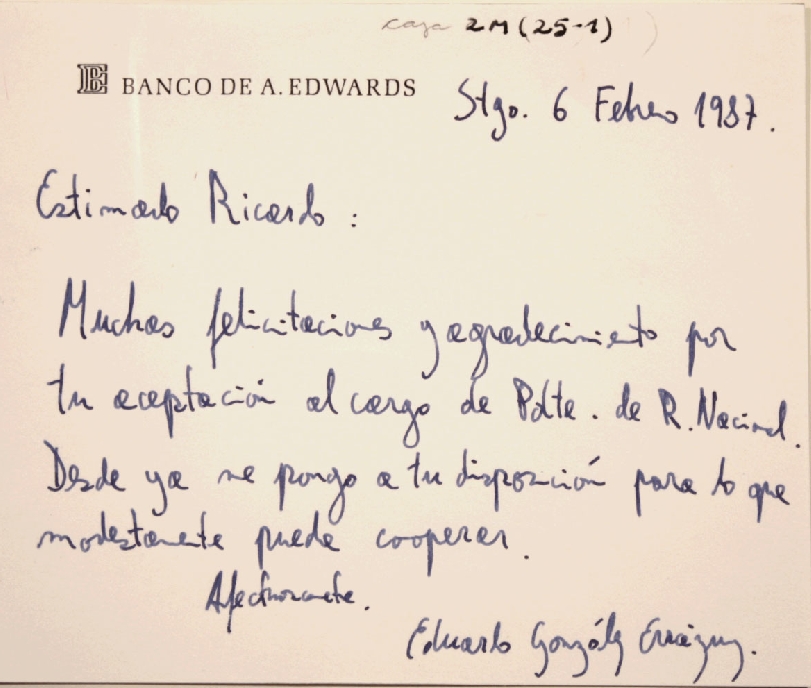 caja 2M (25-1)
BANCO DE A. EDWARDS
Stgo. 6 Febrero 1987.
Estimado Ricardo :
Muchas felicitaciones y agradecimiento por
tu aceptación al cargo de Pdte. de R. Nacional.
Desde ya me pongo a tu disposición para lo que
modestamente puede cooperar.
Afectuosamente.
Eduardo González Errázuriz.